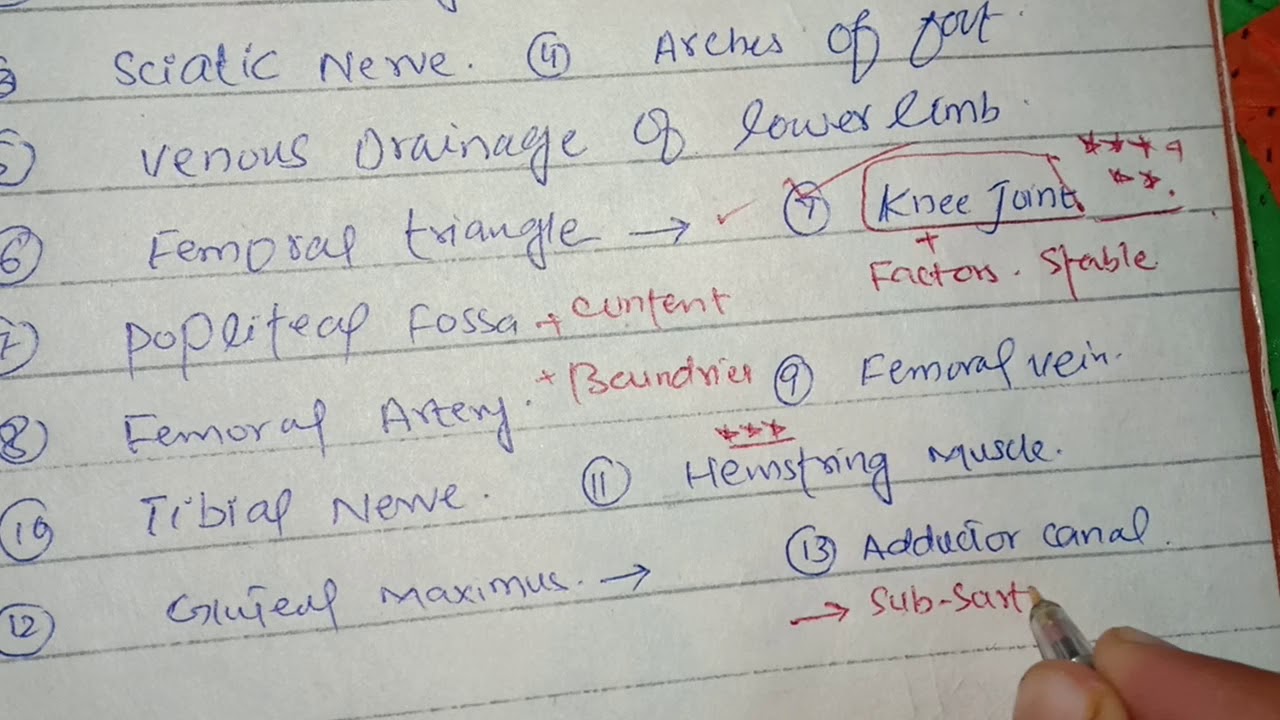 3 Sciatic Nerve. ④ Arches of foot.
5 Venous Drainage of lower limb.
⑥ Femoral triangle → ✓ ⑦ Knee Joint ****
**.
+
Factors. Stable
7 popliteal Fossa + content
+ Boundries
8 Femoral Artery. ⑨ Femoral vein.
10 Tibial Nerve. ⑪ *** Hemstring Muscle.
⑫ Gluteal Maximus. → ⑬ Adductor canal.
→ Sub-Sart